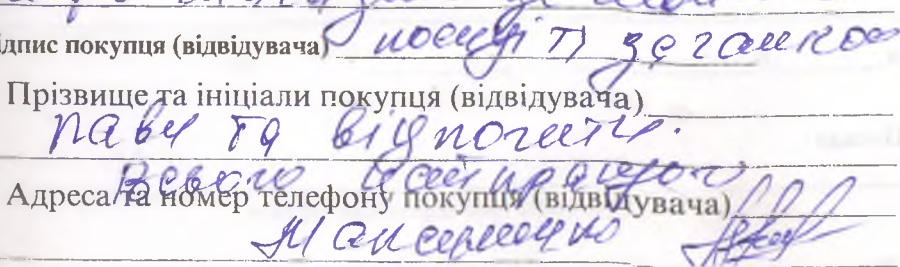 ідпис покупця (відвідувача) посидіти за чашкою
Прізвище та ініціали покупця (відвідувача)
кави та відпочити.
Всього найкращого
Адреса та номер телефону покупця (відвідувача)